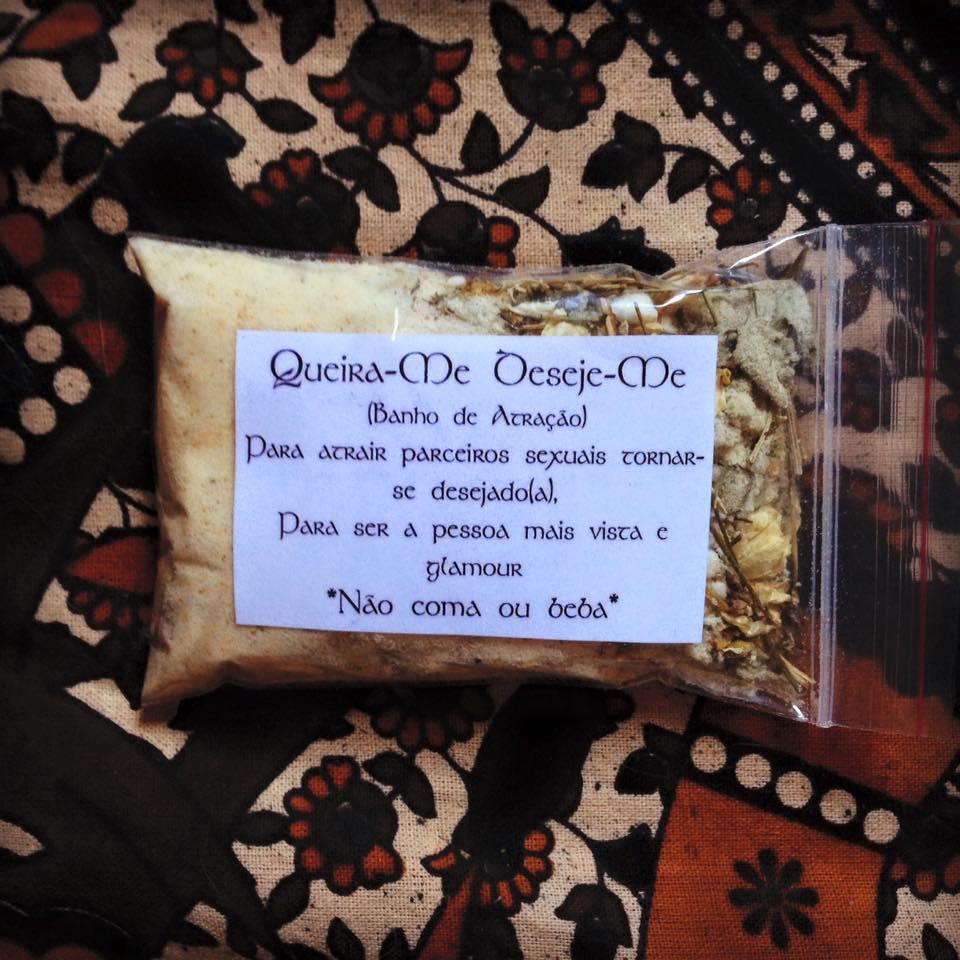 Queira-Me Deseje-Me
(Banho de Atração)
Para atrair parceiros sexuais tornar-
se desejado(a),
Para ser a pessoa mais vista e
glamour
*Não coma ou beba*